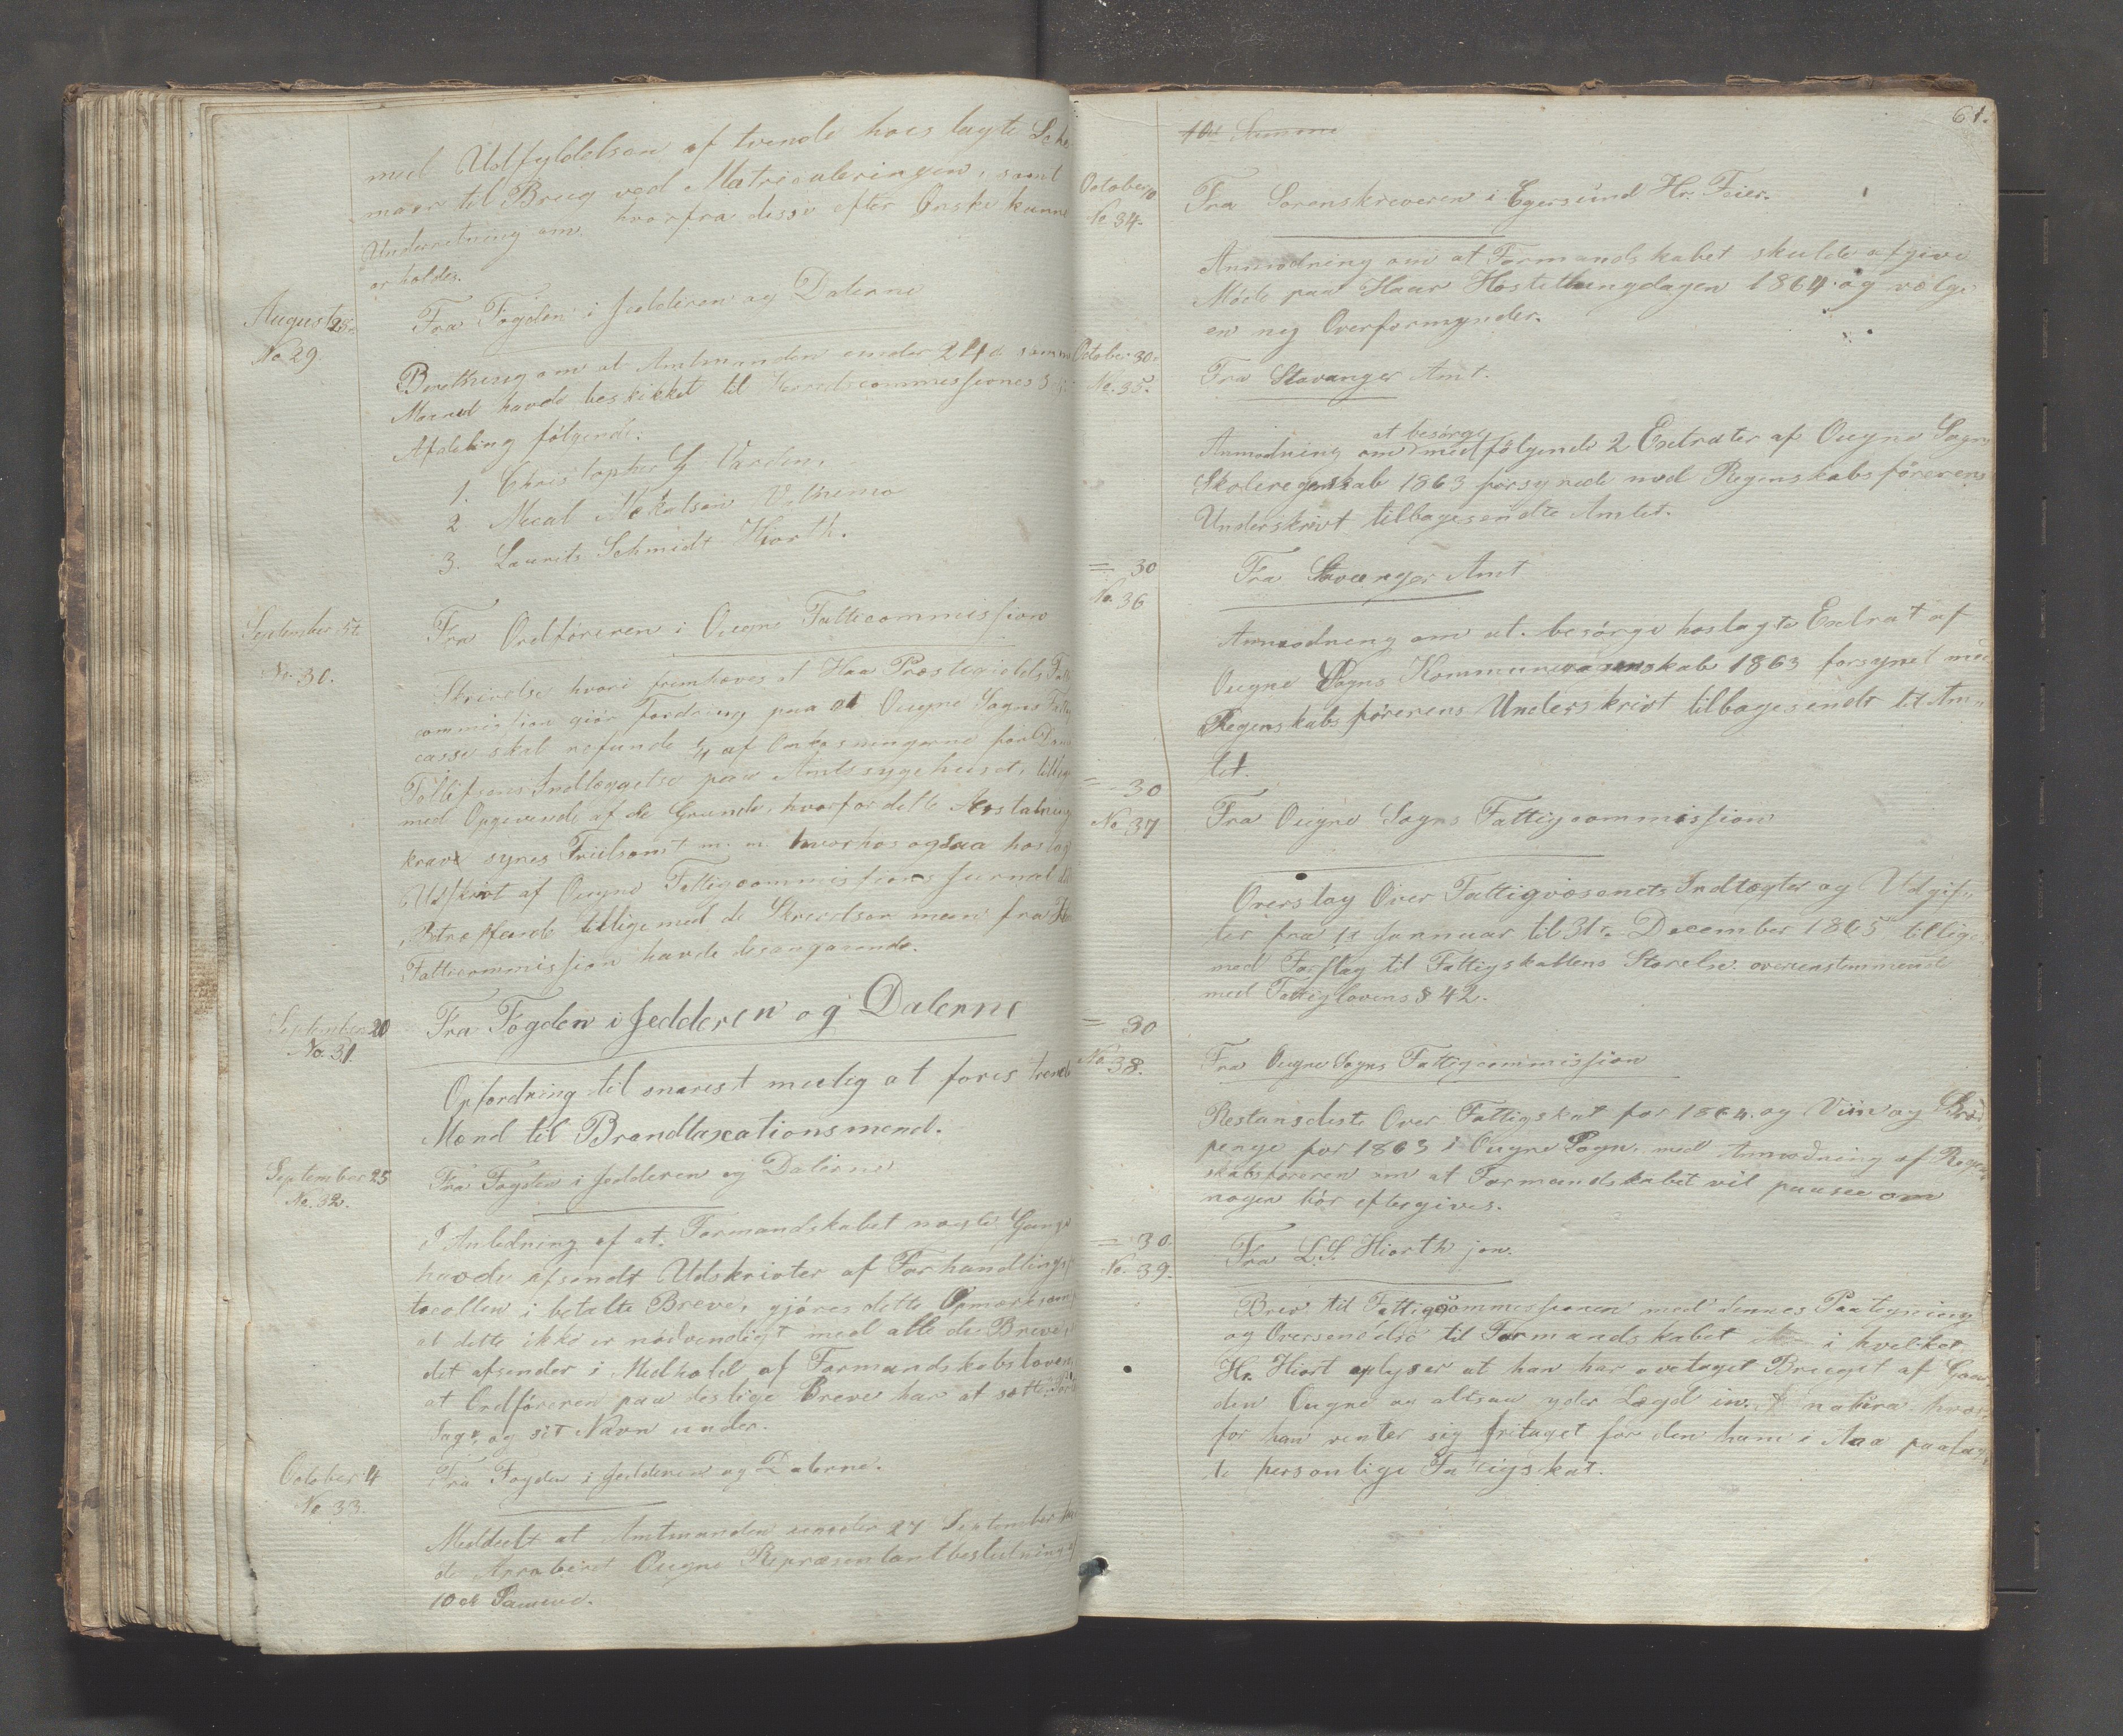 med Udfyldelsen af tvende hoes lagte Sche
maer til Brug ved Matriculeringen, samt
Underretning om hvorfra disse efter Ønske kunne
erholdes.
August 28.
No. 29.
Fra Fogden i Jedderen og Dalerne
Beretning om at Amtmanden under 24de samme
Maaned havde beskikket til Herredscommissiones 3
Afdeling følgende.
1. Christopher G Varden.
2 Mical Mikalsen Vathemo
3. Laurits Schmidt Hiorth.
September 15t.
No. 30.
Fra Ordføreren i Ougne Fatticommission
Skrivelse hvori fremhæves at Haa Præstegiælds Fatti
commission giør Fordring paa at Ougne Sogns Fattig
casse skal refunde 1/4 af Omkosningerne for
Tollifsens Indlæggelse paa Amtssygehuset, tillige
med Opgivende af de Grunde, hvorfor dette Erstatnings
krav synes Trielsomt m. m. hvorhos ogsaa hoslagt
Udskrivt af Ougne Fattigcommissions Jurnal det
Betræffende tilligemed de Skrivelser man fra Haa
Fatticommission havde desangaaende.
September 20
No. 31.
Fra Fogden i Jedderen og Dalerne
Opfordring til snarest muelig at foreslaa trende
Mænd til Brandtaxationsmend.
September 25
No. 32.
Fra Fogden i Jedderen og Dalerne
I Anledning af at Formandskabet nogle Gange
havde afsendt Udskrivter af Forhandlings
tocollen i betalte Breve, gjøres dette Opmærksom
at dette ikke er nødvendigt med alle de Breve,
det afsender i Medhold af Formandskabsloven,
at Ordføreren paa deslige Breve har at sætte
Sag", og sit Navn under.
October 4
No. 33.
Fra Fogden i Jedderen og Dalerne.
Meddeelt at Amtmanden under 27 September hav
de Approberet Ougne Repræsentantbeslutning af
10de Samme.
61.
10de Samme
October 10
No 34.
Fra Sorenskreveren i Egersund Hr. Feier.
Anmodning om at Formandskabet skulde afgive
Møde paa Haar Høstethingdagen 1864 og vælge
en ny Overformynder.
October 30.
No. 35.
Fra Stavanger Amt.
at besørge
Anmodning om medfølgende 2 Extrater af Ougne Sogns
Skoleregnskab 1863 forsynede med Regnskabsførerens
Underskrivt tilbagesendte Amtet.
= 30
No. 36
Fra Stavanger Amt
Anmodning om at besørge hoslagte Extrat af
Ougne Sogns Kommuneregnskab 1863 forsynet med
Regenskabsførerens Underskrivt tilbagesendt til Am
tet.
= 30
No. 37
Fra Ougne Sogns Fattigcommission
Overslag Over Fattigvæsenets Indtægter og Udgif-
ter fra 1st Jannuar til 31te December 1865 tillige
med Forslag til Fattigskattens Størelse overenstemmende
med Fattiglovens § 42.
= 30
No 38.
Fra Ougne Sogns Fattigcommission
Restansliste Over Fattigskat for 1864. og Viin og Brød
penge for 1863 i Ougne Sogn, med Anmodning af Regen
skabsføreren om at Formandskabet vil paasee om
nogen bør eftergives.
= 30.
No. 39.
Fra L.S. Hiorth jon.
Brev til Fattigcommissionen med dennes Paategning
og Oversendelse til Formandskabet i hvilket
Hr. Hiort oplyser at han har overtaget Bruget af Gaar
den Ougne og altsaa yder Lægd in natura hvor
for han venter sig fritaget for den ham i Aaa paalag
te personlige Fattigskat.